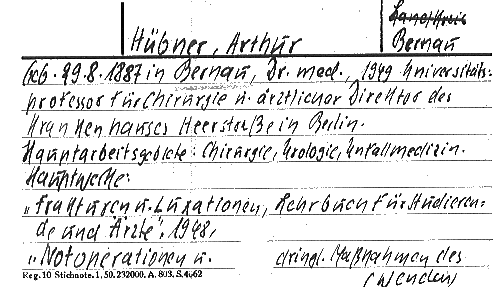 Land/Kreis
Hübner, Arthur
Bernau
Geb. 29.8.1887 in Bernau, Dr. med., 1949 Universitäts-
professor für Chirurgie u. ärztlicher Direktor des
Krankenhauses Heerstraße in Berlin.
Hauptarbeitsgebiete: Chirurgie, Urologie, Unfallmedizin.
Hauptwerke:
"Frakturen u. Luxationen, Lehrbuch für Studieren-
de und Ärzte", 1948,
"Notoperationen u. dringl. Maßnahmen des
Reg. 10 Stichnote. 1, 50. 232000. A. 803. S. 4662